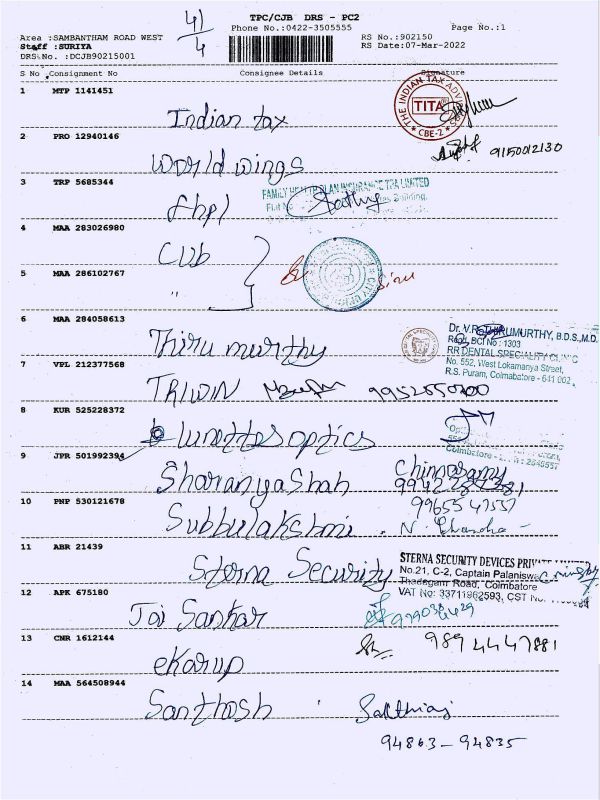 4/4
TPC/CJB DRS - PC2
Phone No.:0422-3505555
Page No.:1
Area :SAMBANTHAM ROAD WEST
RS No.:902150
Staff :SURIYA
RS Date:07-Mar-2022
DRS No. :DCJB90215001
S No Consignment No Consignee Details Signature
1 MTP 1141451
Indian tax
THE INDIAN TAX
TITA
CBE-2
2 PRO 12940146
World wings
9150012130
3 TRP 5685344
fhpl
FAMILY HEALTH PLAN INSURANCE TPA LIMITED
4 MAA 283026980
Cub
5 MAA 286102767
"
6 MAA 284058613
Thiru murthy
Dr. V.P. THIRUMURTHY, B.D.S.,M.D.
Regd. BCI No : 1303
RR DENTAL SPECIALITY CLINIC
No. 552, West Lokamanya Street,
R.S. Puram, Coimbatore - 641 002
7 VPL 212377568
TRIWIN
8 KUR 525228372
lunettes optics
Coimbatore
9 JPR 501992394
Sharanya Shah
10 PNP 530121678
Subbulakshmi
99655 47557
N. Chandra
11 ABR 21439
Sterna Security
STERNA SECURITY DEVICES PRIVATE LIMITED
No.21, C-2, Captain Palaniswamy
Thadagam Road, Coimbatore
VAT No: 33711962593, CST No.
12 APK 675180
Jai Sankar
13 CNR 1612144
ekarup
989 4447881
14 MAA 564508944
Santhosh
Sakthiraj
94863-94835